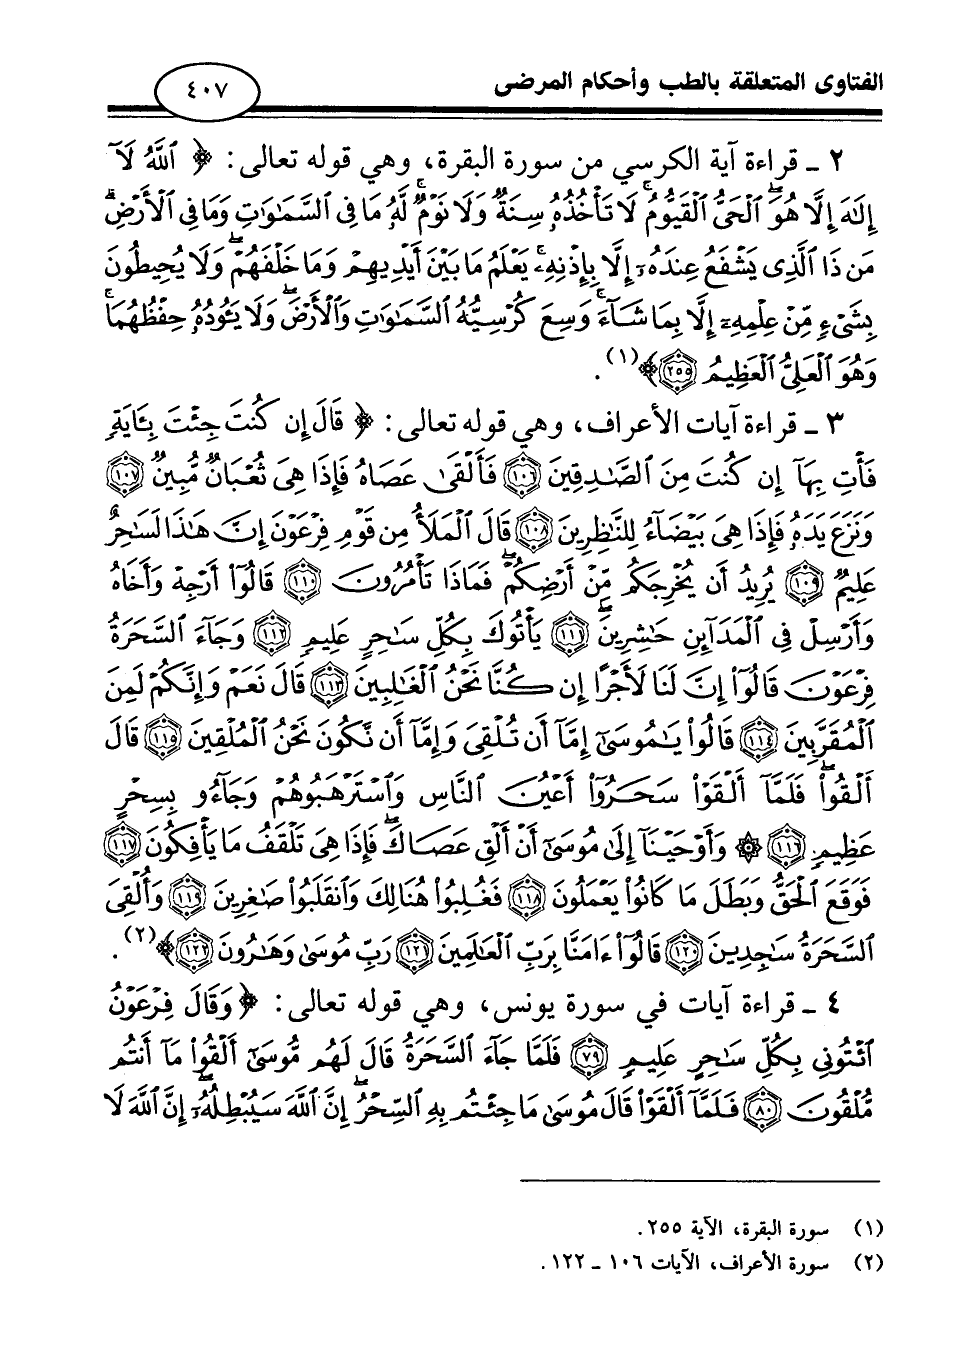 الفتاوى المتعلقة بالطب وأحكام المرضى
٤٠٧
٢ ـ قراءة آية الكرسي من سورة البقرة، وهي قوله تعالى: ﴿ ٱللَّهُ لَآ
إِلَٰهَ إِلَّا هُوَ ٱلْحَىُّ ٱلْقَيُّومُ ۚ لَا تَأْخُذُهُۥ سِنَةٌ وَلَا نَوْمٌ ۚ لَّهُۥ مَا فِى ٱلسَّمَٰوَٰتِ وَمَا فِى ٱلْأَرْضِ ۗ
مَن ذَا ٱلَّذِى يَشْفَعُ عِندَهُۥٓ إِلَّا بِإِذْنِهِۦ ۚ يَعْلَمُ مَا بَيْنَ أَيْدِيهِمْ وَمَا خَلْفَهُمْ ۖ وَلَا يُحِيطُونَ
بِشَىْءٍ مِّنْ عِلْمِهِۦٓ إِلَّا بِمَا شَآءَ ۚ وَسِعَ كُرْسِيُّهُ ٱلسَّمَٰوَٰتِ وَٱلْأَرْضَ ۖ وَلَا يَـُٔودُهُۥ حِفْظُهُمَا ۚ
وَهُوَ ٱلْعَلِىُّ ٱلْعَظِيمُ ٢٥٥ ﴾(١) .
٣ ـ قراءة آيات الأعراف، وهي قوله تعالى: ﴿ قَالَ إِن كُنتَ جِئْتَ بِـَٔايَةٍ
فَأْتِ بِهَآ إِن كُنتَ مِنَ ٱلصَّٰدِقِينَ ١٠٦ فَأَلْقَىٰ عَصَاهُ فَإِذَا هِىَ ثُعْبَانٌ مُّبِينٌ ١٠٧
وَنَزَعَ يَدَهُۥ فَإِذَا هِىَ بَيْضَآءُ لِلنَّٰظِرِينَ ١٠٨ قَالَ ٱلْمَلَأُ مِن قَوْمِ فِرْعَوْنَ إِنَّ هَٰذَا لَسَٰحِرٌ
عَلِيمٌ ١٠٩ يُرِيدُ أَن يُخْرِجَكُم مِّنْ أَرْضِكُمْ ۖ فَمَاذَا تَأْمُرُونَ ١١٠ قَالُوٓا۟ أَرْجِهْ وَأَخَاهُ
وَأَرْسِلْ فِى ٱلْمَدَآئِنِ حَٰشِرِينَ ١١١ يَأْتُوكَ بِكُلِّ سَٰحِرٍ عَلِيمٍ ١١٢ وَجَآءَ ٱلسَّحَرَةُ
فِرْعَوْنَ قَالُوٓا۟ إِنَّ لَنَا لَأَجْرًا إِن كُنَّا نَحْنُ ٱلْغَٰلِبِينَ ١١٣ قَالَ نَعَمْ وَإِنَّكُمْ لَمِنَ
ٱلْمُقَرَّبِينَ ١١٤ قَالُوا۟ يَٰمُوسَىٰٓ إِمَّآ أَن تُلْقِىَ وَإِمَّآ أَن نَّكُونَ نَحْنُ ٱلْمُلْقِينَ ١١٥ قَالَ
أَلْقُوا۟ ۖ فَلَمَّآ أَلْقَوْا۟ سَحَرُوٓا۟ أَعْيُنَ ٱلنَّاسِ وَٱسْتَرْهَبُوهُمْ وَجَآءُو بِسِحْرٍ
عَظِيمٍ ١١٦ ۞ وَأَوْحَيْنَآ إِلَىٰ مُوسَىٰٓ أَنْ أَلْقِ عَصَاكَ ۖ فَإِذَا هِىَ تَلْقَفُ مَا يَأْفِكُونَ ١١٧
فَوَقَعَ ٱلْحَقُّ وَبَطَلَ مَا كَانُوا۟ يَعْمَلُونَ ١١٨ فَغُلِبُوا۟ هُنَالِكَ وَٱنقَلَبُوا۟ صَٰغِرِينَ ١١٩ وَأُلْقِىَ
ٱلسَّحَرَةُ سَٰجِدِينَ ١٢٠ قَالُوٓا۟ ءَامَنَّا بِرَبِّ ٱلْعَٰلَمِينَ ١٢١ رَبِّ مُوسَىٰ وَهَٰرُونَ ١٢٢ ﴾(٢) .
٤ ـ قراءة آيات في سورة يونس، وهي قوله تعالى: ﴿ وَقَالَ فِرْعَوْنُ
ٱئْتُونِى بِكُلِّ سَٰحِرٍ عَلِيمٍ ٧٩ فَلَمَّا جَآءَ ٱلسَّحَرَةُ قَالَ لَهُم مُّوسَىٰٓ أَلْقُوا۟ مَآ أَنتُم
مُّلْقُونَ ٨٠ فَلَمَّآ أَلْقَوْا۟ قَالَ مُوسَىٰ مَا جِئْتُم بِهِ ٱلسِّحْرُ ۖ إِنَّ ٱللَّهَ سَيُبْطِلُهُۥٓ ۖ إِنَّ ٱللَّهَ لَا
(١) سورة البقرة، الآية ٢٥٥ .
(٢) سورة الأعراف، الآيات ١٠٦ ـ ١٢٢ .